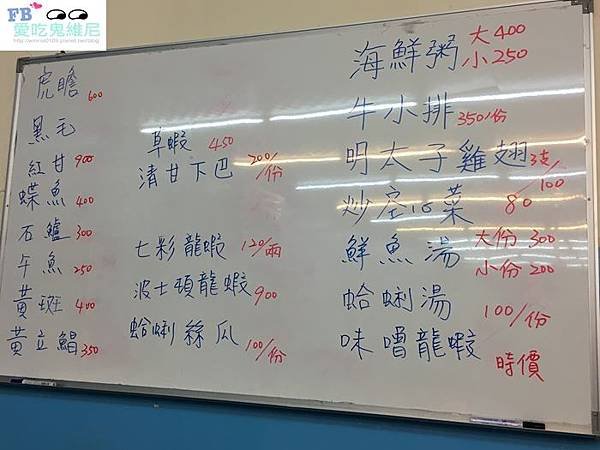 FB
愛吃鬼維尼
虎瞻 600
黑毛
紅甘 900
蝶魚 400
石鱸 300
午魚 250
黃斑 400
黃立鯧 350
草蝦 450
清甘下巴 200/份
七彩龍蝦 120/兩
波士頓龍蝦 900
蛤蜊絲瓜 100/份
海鮮粥 大400
小250
牛小排 350/份
明太子雞翅 3支/100
炒空心菜 80
鮮魚湯 大份 300
小份 200
蛤蜊湯 100/份
味噌龍蝦 時價